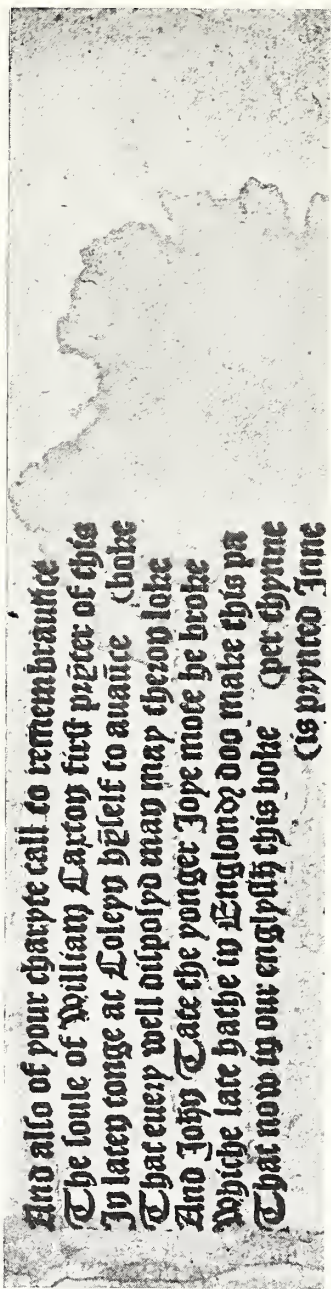 And also of your charyte call to remembraunce
The soule of William Caxton first prȳter of this
In laten tonge at Coleyn hȳself to auaūce (boke
That euery well disposyd man may theron loke
And John Tate the yonger Joye mote he broke
Whiche late hathe in Englond doo make this pa
That now in our englyssh this boke (per thynne
(is prynted Inne